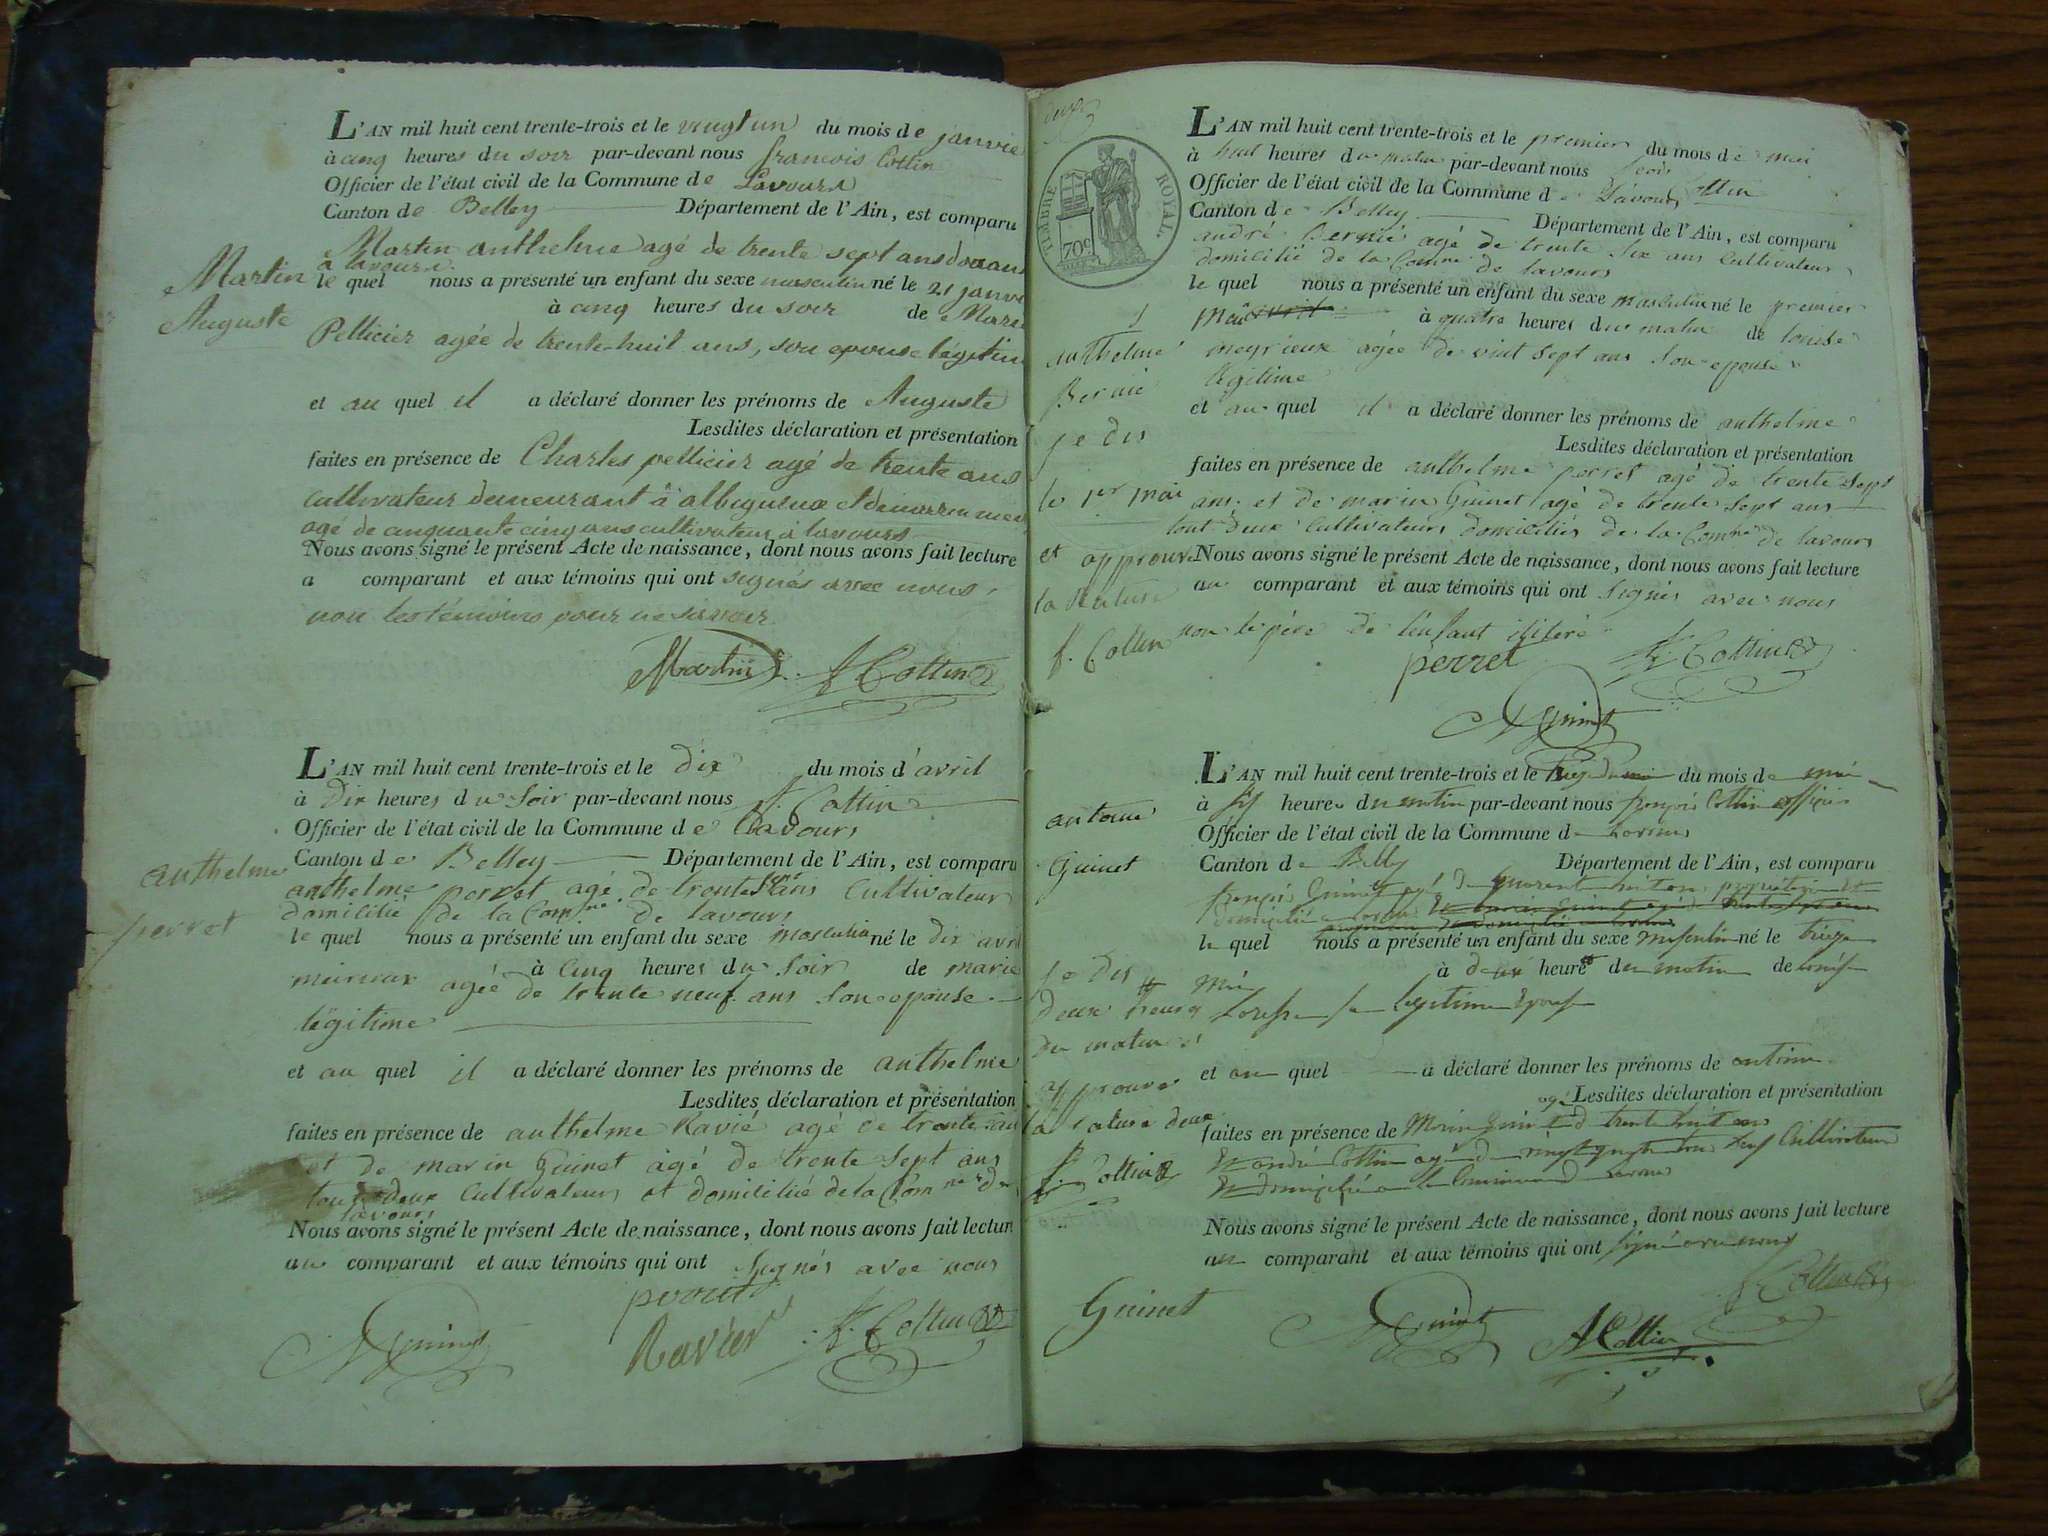 L'AN mil huit cent trente-trois et le vingt un du mois de janvie
à cinq heures du soir par-devant nous francois Cottin
Officier de l'état civil de la Commune de Lavours
Canton de Belley Département de l'Ain, est comparu
Martin anthelme agé de trente sept ans
à lavours
Martin
le quel nous a présenté un enfant du sexe masculin né le 21 janvi
Auguste
à cinq heures du soir de Marie
Pellicier agée de trente huit ans, son epouse légitim
et au quel il a déclaré donner les prénoms de Auguste
Lesdites déclaration et présentation
faites en présence de Charles pellicier agé de trente ans
cultivateur demeurant à
agé de cinquante cinq ans cultivateur à lavours
Nous avons signé le présent Acte de naissance, dont nous avons fait lecture
a comparant et aux témoins qui ont signés avec nous,
non les témoins pour ne savoir
Martin F Cottin
L'AN mil huit cent trente-trois et le dix du mois d'avril
à Dix heures du Soir par-devant nous f. Cottin
Officier de l'état civil de la Commune de Lavours
Canton de Belley Département de l'Ain, est comparu
anthelme
perret
anthelme perret agé de trente ans Cultivateur
domicilié de la Comne de lavours
le quel nous a présenté un enfant du sexe masculin né le dix avril
à Cinq heures du Soir de marie
meirieux agée de trente neuf ans Son epouse
légitime
et au quel il a déclaré donner les prénoms de anthelme
Lesdites déclaration et présentation
faites en présence de anthelme Ravié agé de trente
et de marin Guinet agé de trente Sept ans
tous deux Cultivateurs et domicilié de la Comne de
lavours
Nous avons signé le présent Acte de naissance, dont nous avons fait lectur
au comparant et aux témoins qui ont Signés avec nous
perret
M Guinet Ravier f. Cottin
TIMBRE ROYAL.
70c
L'AN mil huit cent trente-trois et le premier du mois de mai
à huit heures du matin par-devant nous
Officier de l'état civil de la Commune de Lavours Cottin
Canton de Belley Département de l'Ain, est comparu
andré Bernié agé de trente Six ans Cultivateur
domicilié de la Comne de lavours
le quel nous a présenté un enfant du sexe masculin né le premier
mai avril à quatre heures du matin de louise
meyrieux agée de vint sept ans Son epouse
légitime
anthelme
Bernié
et au quel il a déclaré donner les prénoms de anthelme
je dis
Lesdites déclaration et présentation
faites en présence de anthelme perret agé de trente sept
le 1er mai
ans et de marin Guinet agé de trente Sept ans
tout deux Cultivateurs domiciliés de la Comne de lavours
et approuve
Nous avons signé le présent Acte de naissance, dont nous avons fait lecture
la rature
au comparant et aux témoins qui ont Signés avec nous
f. Cottin
non le père de l'enfant
perret f. Cottin
M Guinet
L'AN mil huit cent trente-trois et le du mois de mai
à six heures du matin par-devant nous françois Cottin officier
Officier de l'état civil de la Commune de Lavours
Canton de Belley Département de l'Ain, est comparu
antoine
Guinet
françois Guinet agé de quarante huit ans propriétaire et
domicilié à Lavours
le quel nous a présenté un enfant du sexe masculin né le treize
je dis
mai à deux heures du matin de
deux heures
du matin
sa légitime Epouse
approuve
et au quel a déclaré donner les prénoms de antoine
Lesdites déclaration et présentation
la rature deux
faites en présence de Marin Guinet agé de trente huit ans
f. Cottin
Et andré Cottin agé de vingt ans tous deux Cultivateurs
Et domicilié la Commune de Lavours
Nous avons signé le présent Acte de naissance, dont nous avons fait lecture
au comparant et aux témoins qui ont signé avec nous
f Cottin
Guinet M Guinet A Cottin